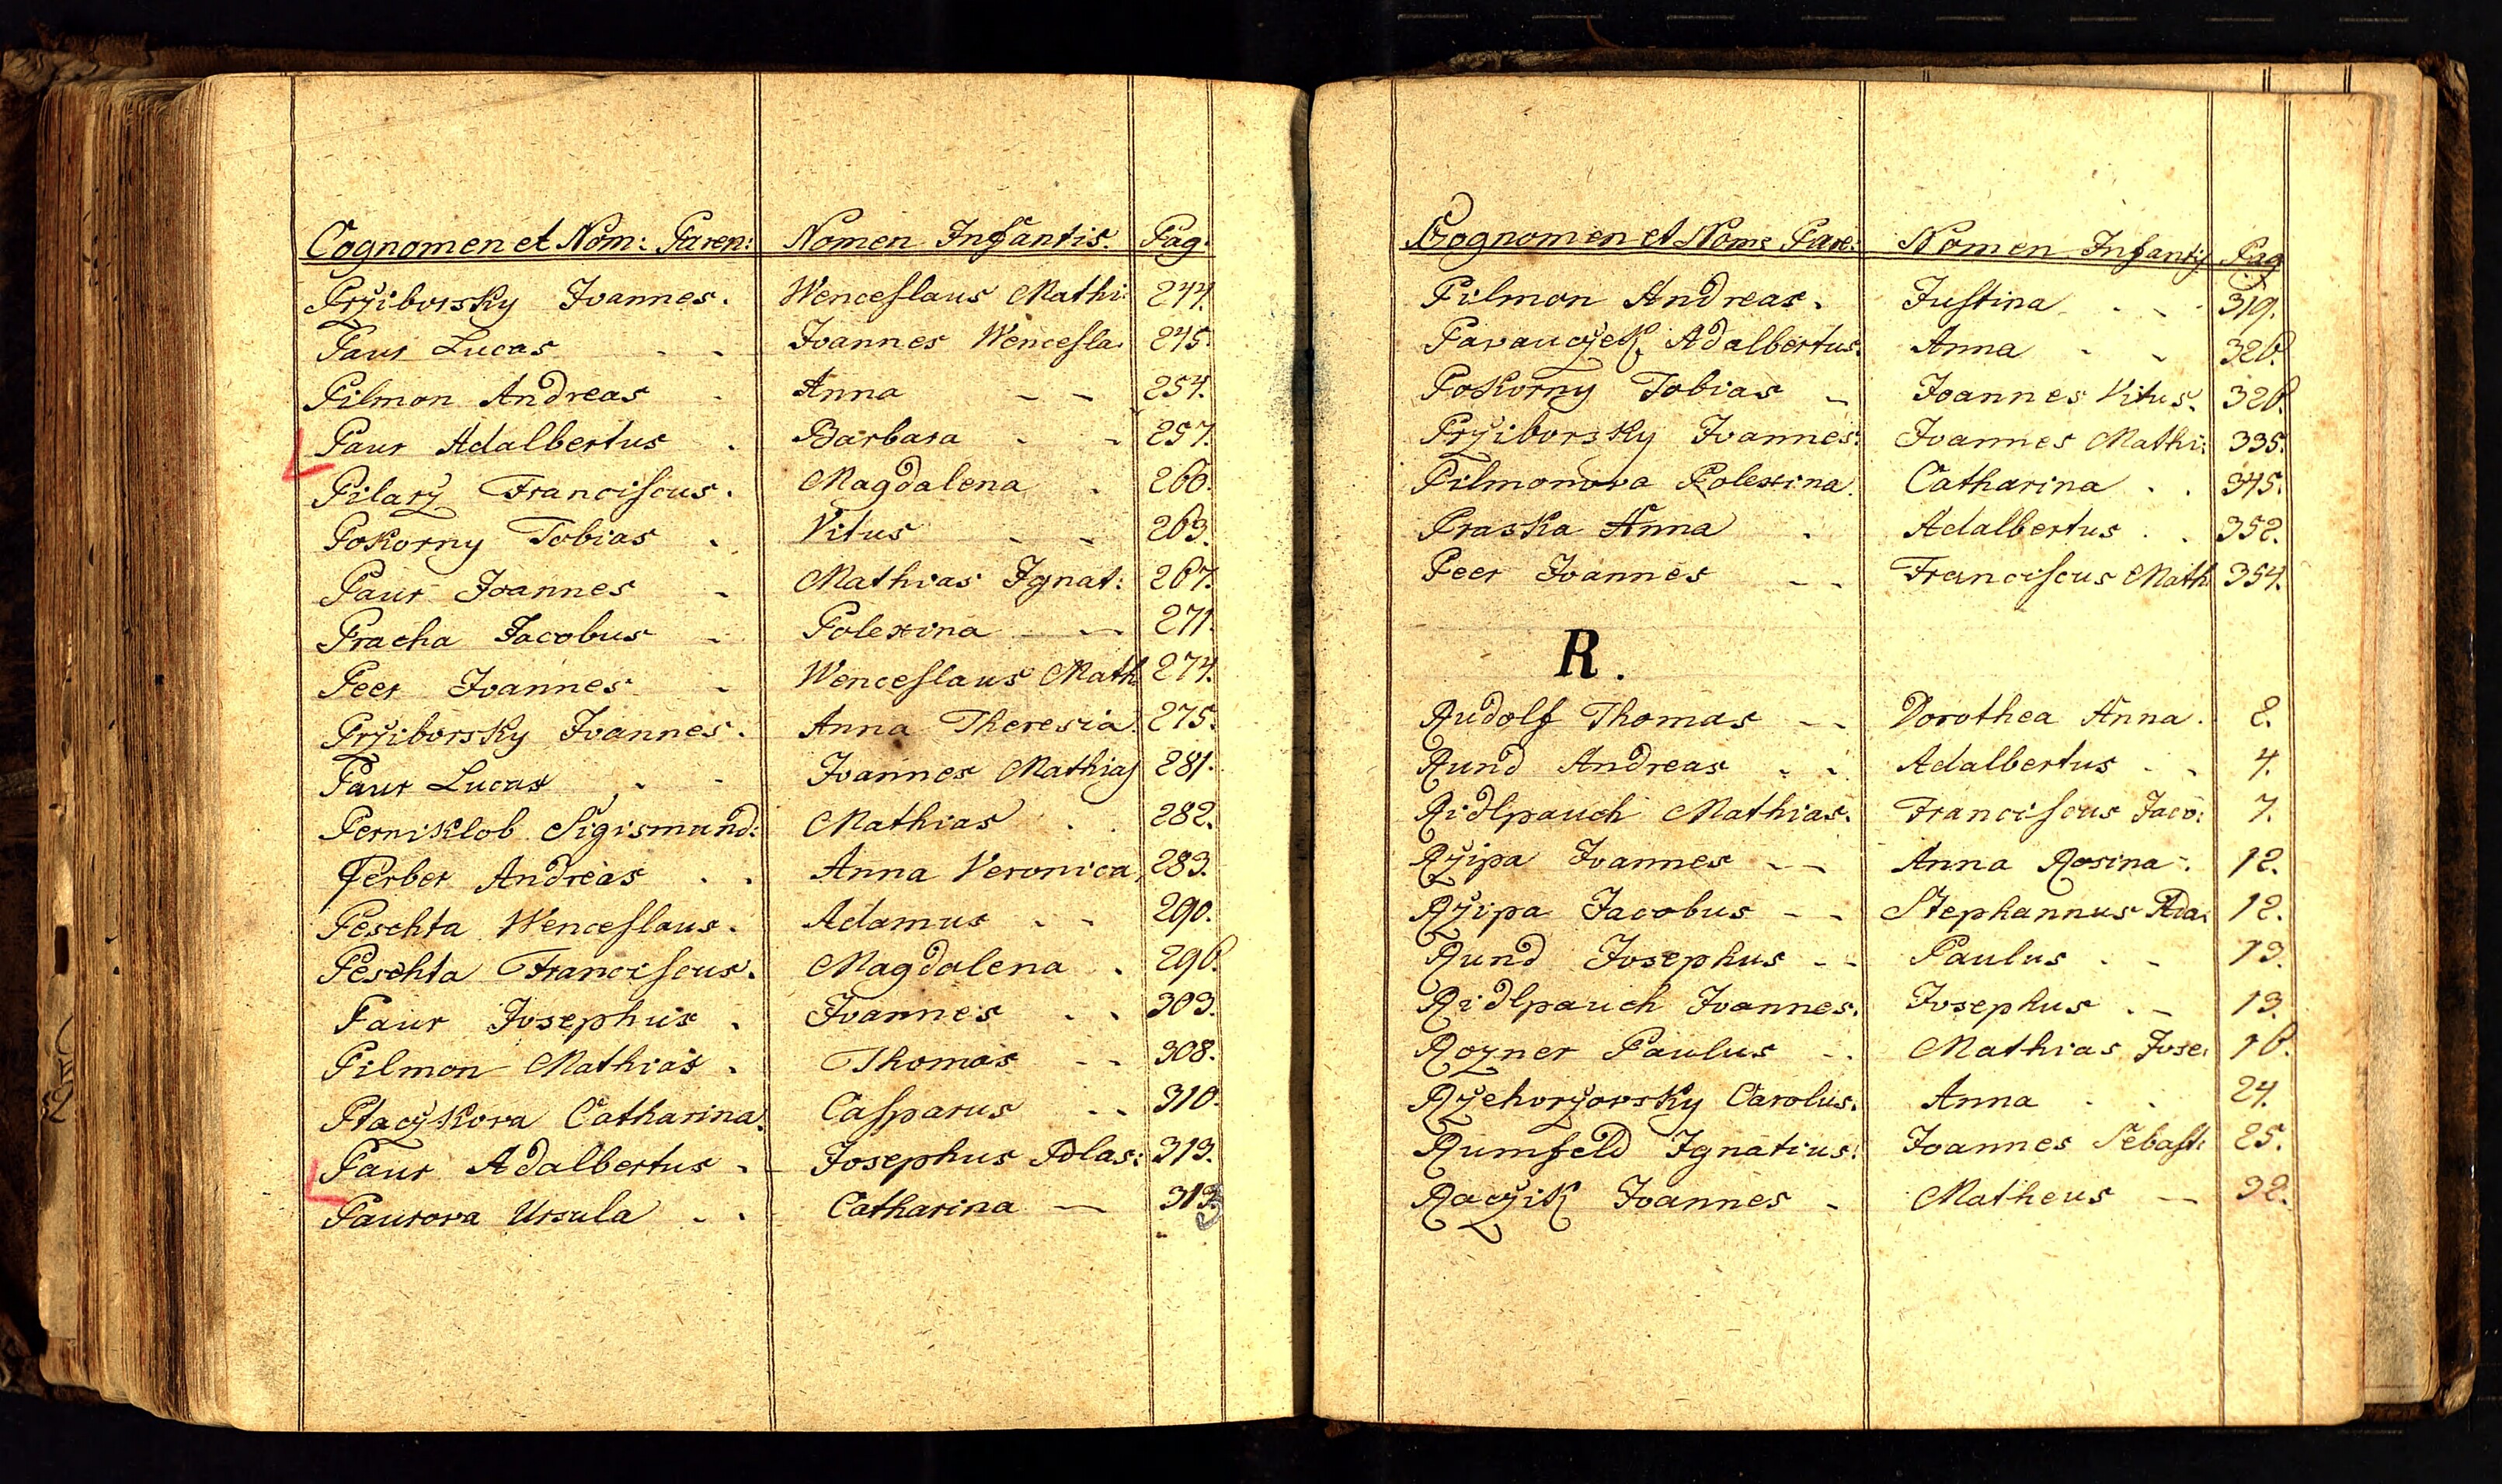 Cognomen et Nom: Paren: Nomen Infantis. Pag:
Prziborsky Joannes. Wenceslaus Mathi: 244.
Paur Lucas - - Joannes Wencesla: 245.
Pilmon Andreas - Anna - - 254.
Paur Adalbertus . Barbara - - 257.
Pilarz Franciscus. Magdalena . 260.
Pokorny Tobias . Vitus - - 263.
Paur Joannes - Mathias Ignat: 267.
Pracha Jacobus - Polexina - - 271.
Peer Joannes - Wenceslaus Math 274.
Prziborsky Joannes. Anna Theresia. 275.
Paur Lucas . - Joannes Mathias 281.
Perniklob Sigismund: Mathias . . 282.
Ferber Andreas . . Anna Veronica 283.
Peschta Wenceslaus. Adamus - - 290.
Peschta Franciscus. Magdalena . 296.
Paur Josephus . Joannes . . 303.
Pilmon Mathias . Thomas - - 308.
Ptaczkova Catharina. Casparus - - 310.
Paur Adalbertus . Josephus Blas: 313.
Paurova Ursula - . Catharina — 313.
Cognomen et Nom: Pare: Nomen Infantis Pag
Pilmon Andreas. Justina . - . 319.
Pavauczek Adalbertus. Anna - - 326.
Pokorny Tobias - Joannes Vitus. 326.
Prziborsky Joannes: Joannes Mathi: 335.
Pilmonova Polexina. Catharina . . 345.
Praska Anna . Adalbertus . . 352.
Peer Joannes - - Franciscus Math 354.
R.
Rudolf Thomas - - Dorothea Anna. 2.
Rund Andreas . . Adalbertus - - 4.
Ridlpauch Mathias. Franciscus Jaco: 7.
Rzipa Joannes - - Anna Rosina. 12.
Rzipa Jacobus - - Stephannus Ada: 12.
Rund Josephus - - Paulus . - 13.
Ridlpauch Joannes. Josephus . - 13.
Rozner Paulus - . Mathias Jose: 16.
Rzehorzovsky Carolus. Anna - . 24.
Rumfeld Ignatius: Joannes Sebast: 25.
Raczik Joannes - Matheus — 32.